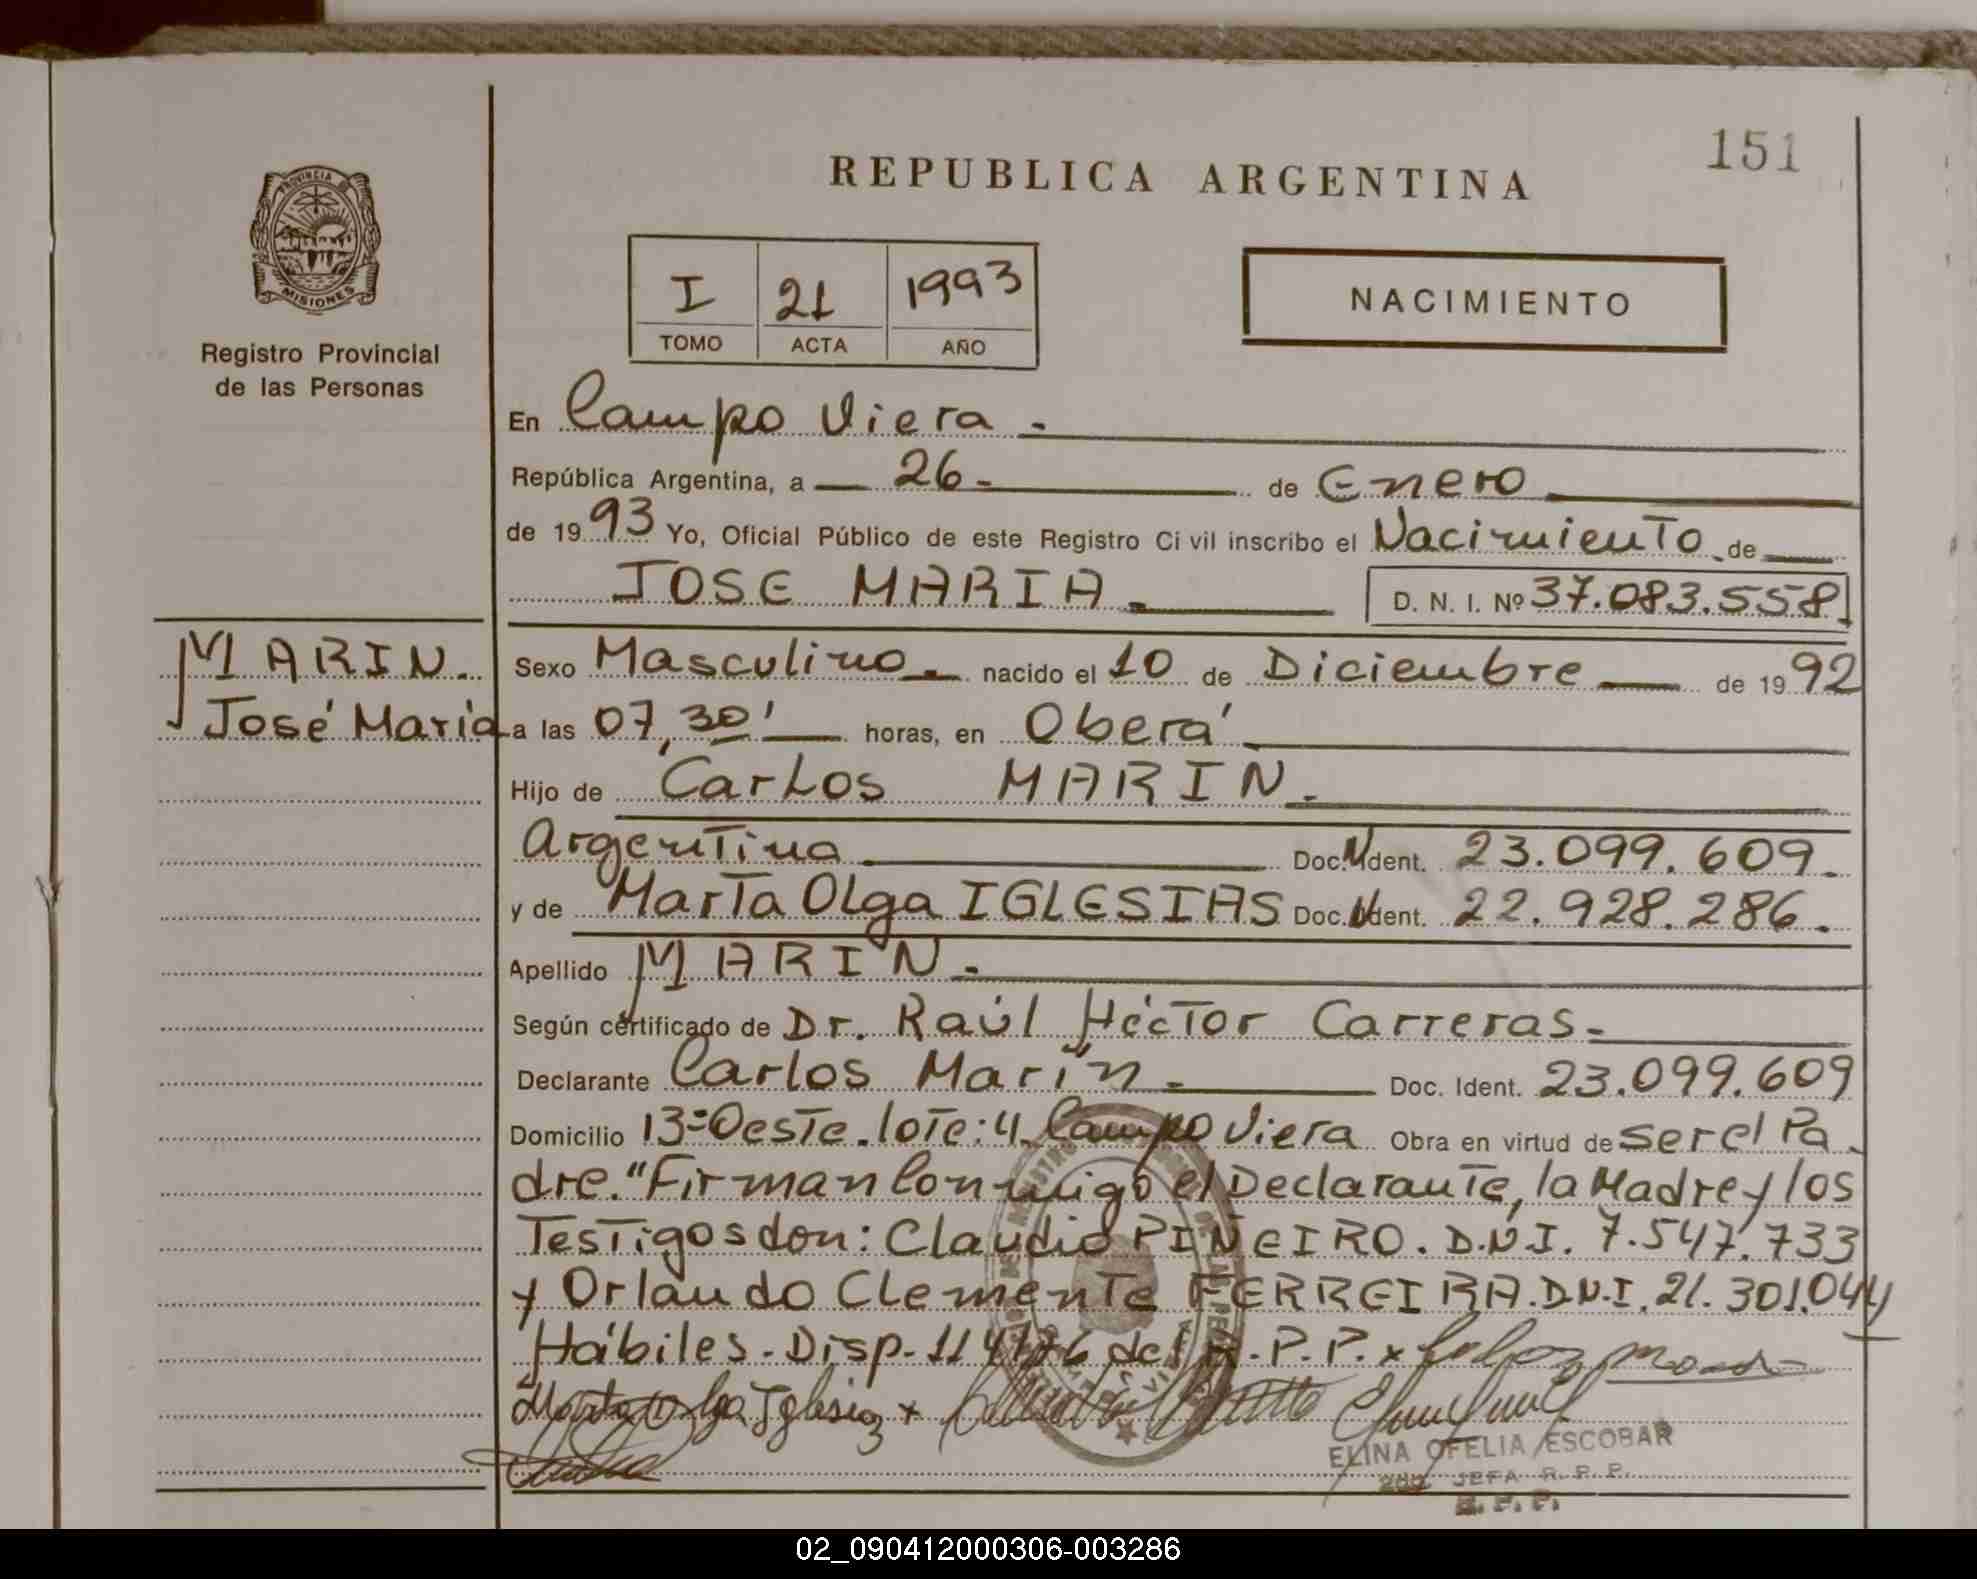 151
REPUBLICA ARGENTINA
PROVINCIA DE
MISIONES
Registro Provincial
de las Personas
I 21 1993
TOMO ACTA AÑO
NACIMIENTO
En Campo Viera.
República Argentina, a 26 de Enero
de 1993 Yo, Oficial Público de este Registro Civil inscribo el Nacimiento de
JOSE MARIA D. N. I. Nº 37.083.558
MARIN.
José María
Sexo Masculino nacido el 10 de Diciembre de 1992
a las 07,30' horas, en Oberá
Hijo de Carlos MARIN.
Argentina Doc. N Ident. 23.099.609.
y de Marta Olga IGLESIAS Doc. N Ident. 22.928.286.
Apellido MARIN.
Según certificado de Dr. Raúl Héctor Carreras.
Declarante Carlos Marín. Doc. Ident. 23.099.609
Domicilio 13=Oeste. lote: 4. Campo Viera Obra en virtud de ser el Pa
dre. "Firman Conmigo el Declarante, la Madre y los
Testigos don: Claudio PIÑEIRO. D.N.I. 7.547.733
y Orlando Clemente FERREIRA. D.N.I. 21.301.044
Hábiles. Disp. 114/76 del R.P.P. x
Marta Olga Iglesias x
ELINA OFELIA ESCOBAR
2da. JEFA R. P. P.
R. P. P.
02_090412000306-003286